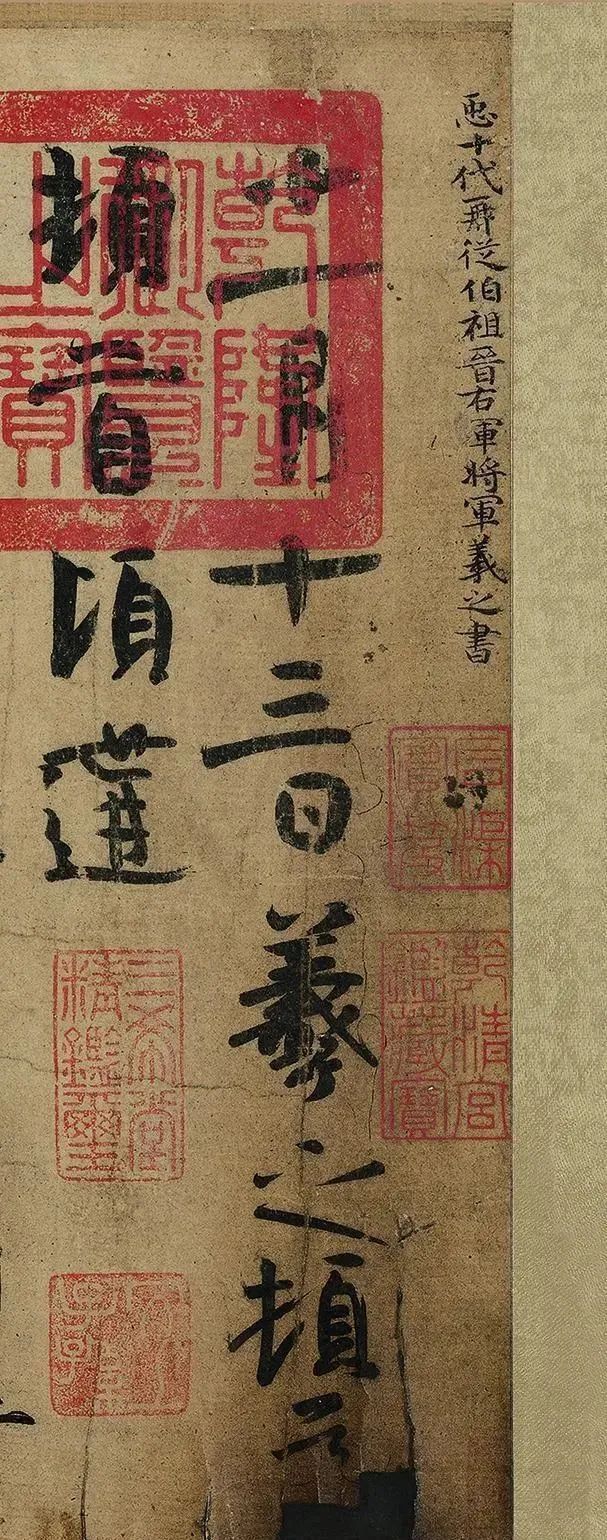 𢘑十代再從伯祖晉右軍將軍羲之書
十一月十三日羲之頓首
頓首頃遘
乾隆御覽之寶
乾清宮鑑藏寶
三希堂精鑑璽
宜子孫